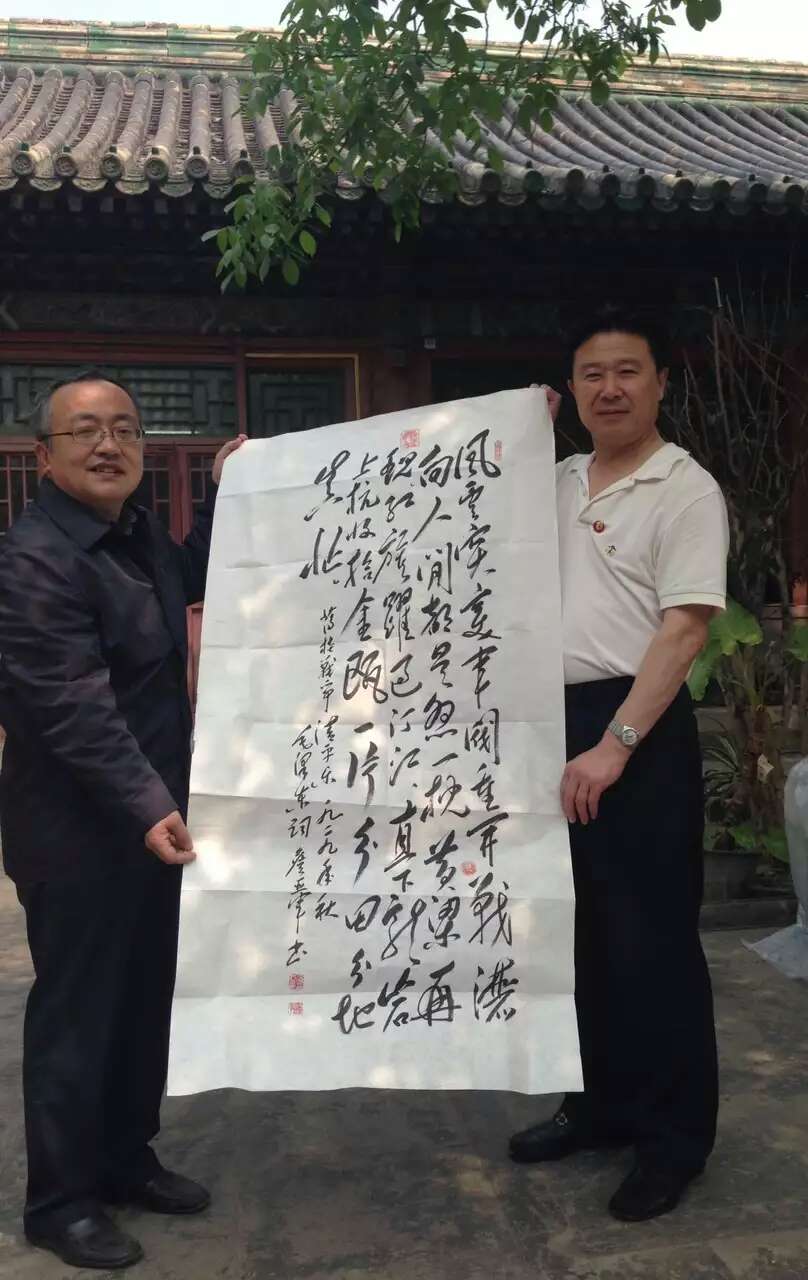 風雲突变軍閥重开戰灑
向人間都是怨一枕黄粱再
現红旗躍过汀江直下龍岩
上杭收拾金瓯一片分田分地
真忙
蒋桂戰争清平乐一九二九年秋
毛澤东词 书